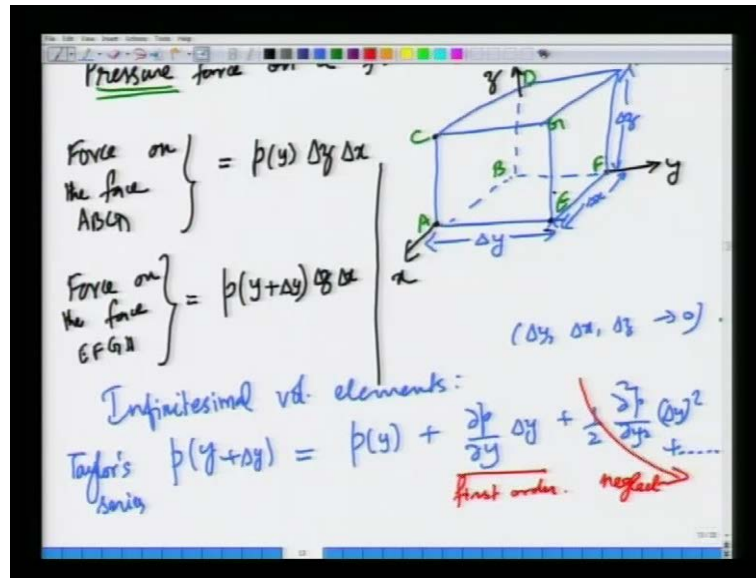 File Edit View Insert Actions Tools Help
Pressure force on
Force on
the face
ABCD
= p(y) Δz Δx
Force on
the face
EFGH
= p(y+Δy) Δz Δx
z
D
C
B
A
E
F
y
x
Δy
Δx
Δz
(Δy, Δx, Δz → 0)
Infinitesimal vol. elements:
Taylor's
series
p(y+Δy) = p(y) + ∂p/∂y Δy + 1/2 ∂²p/∂y² (Δy)²
+......
first order.
neglect